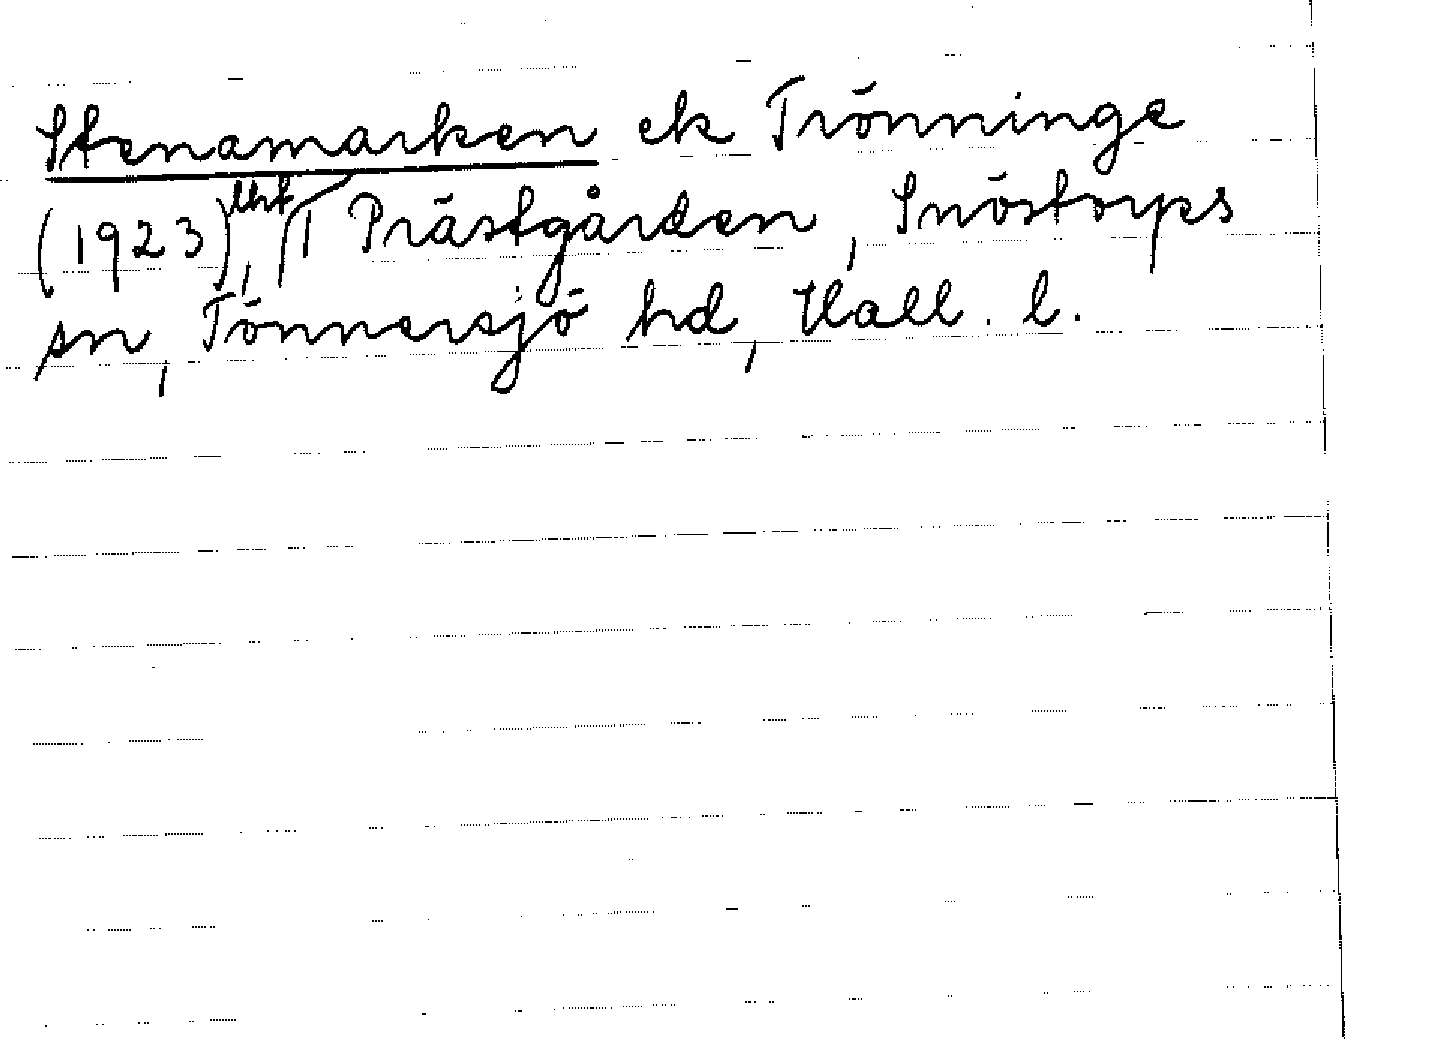 Stenamarken ek Trönninge
(1923), 1 Prästgården, Snöstorps
sn, Tönnersjö hd, Hall. l.